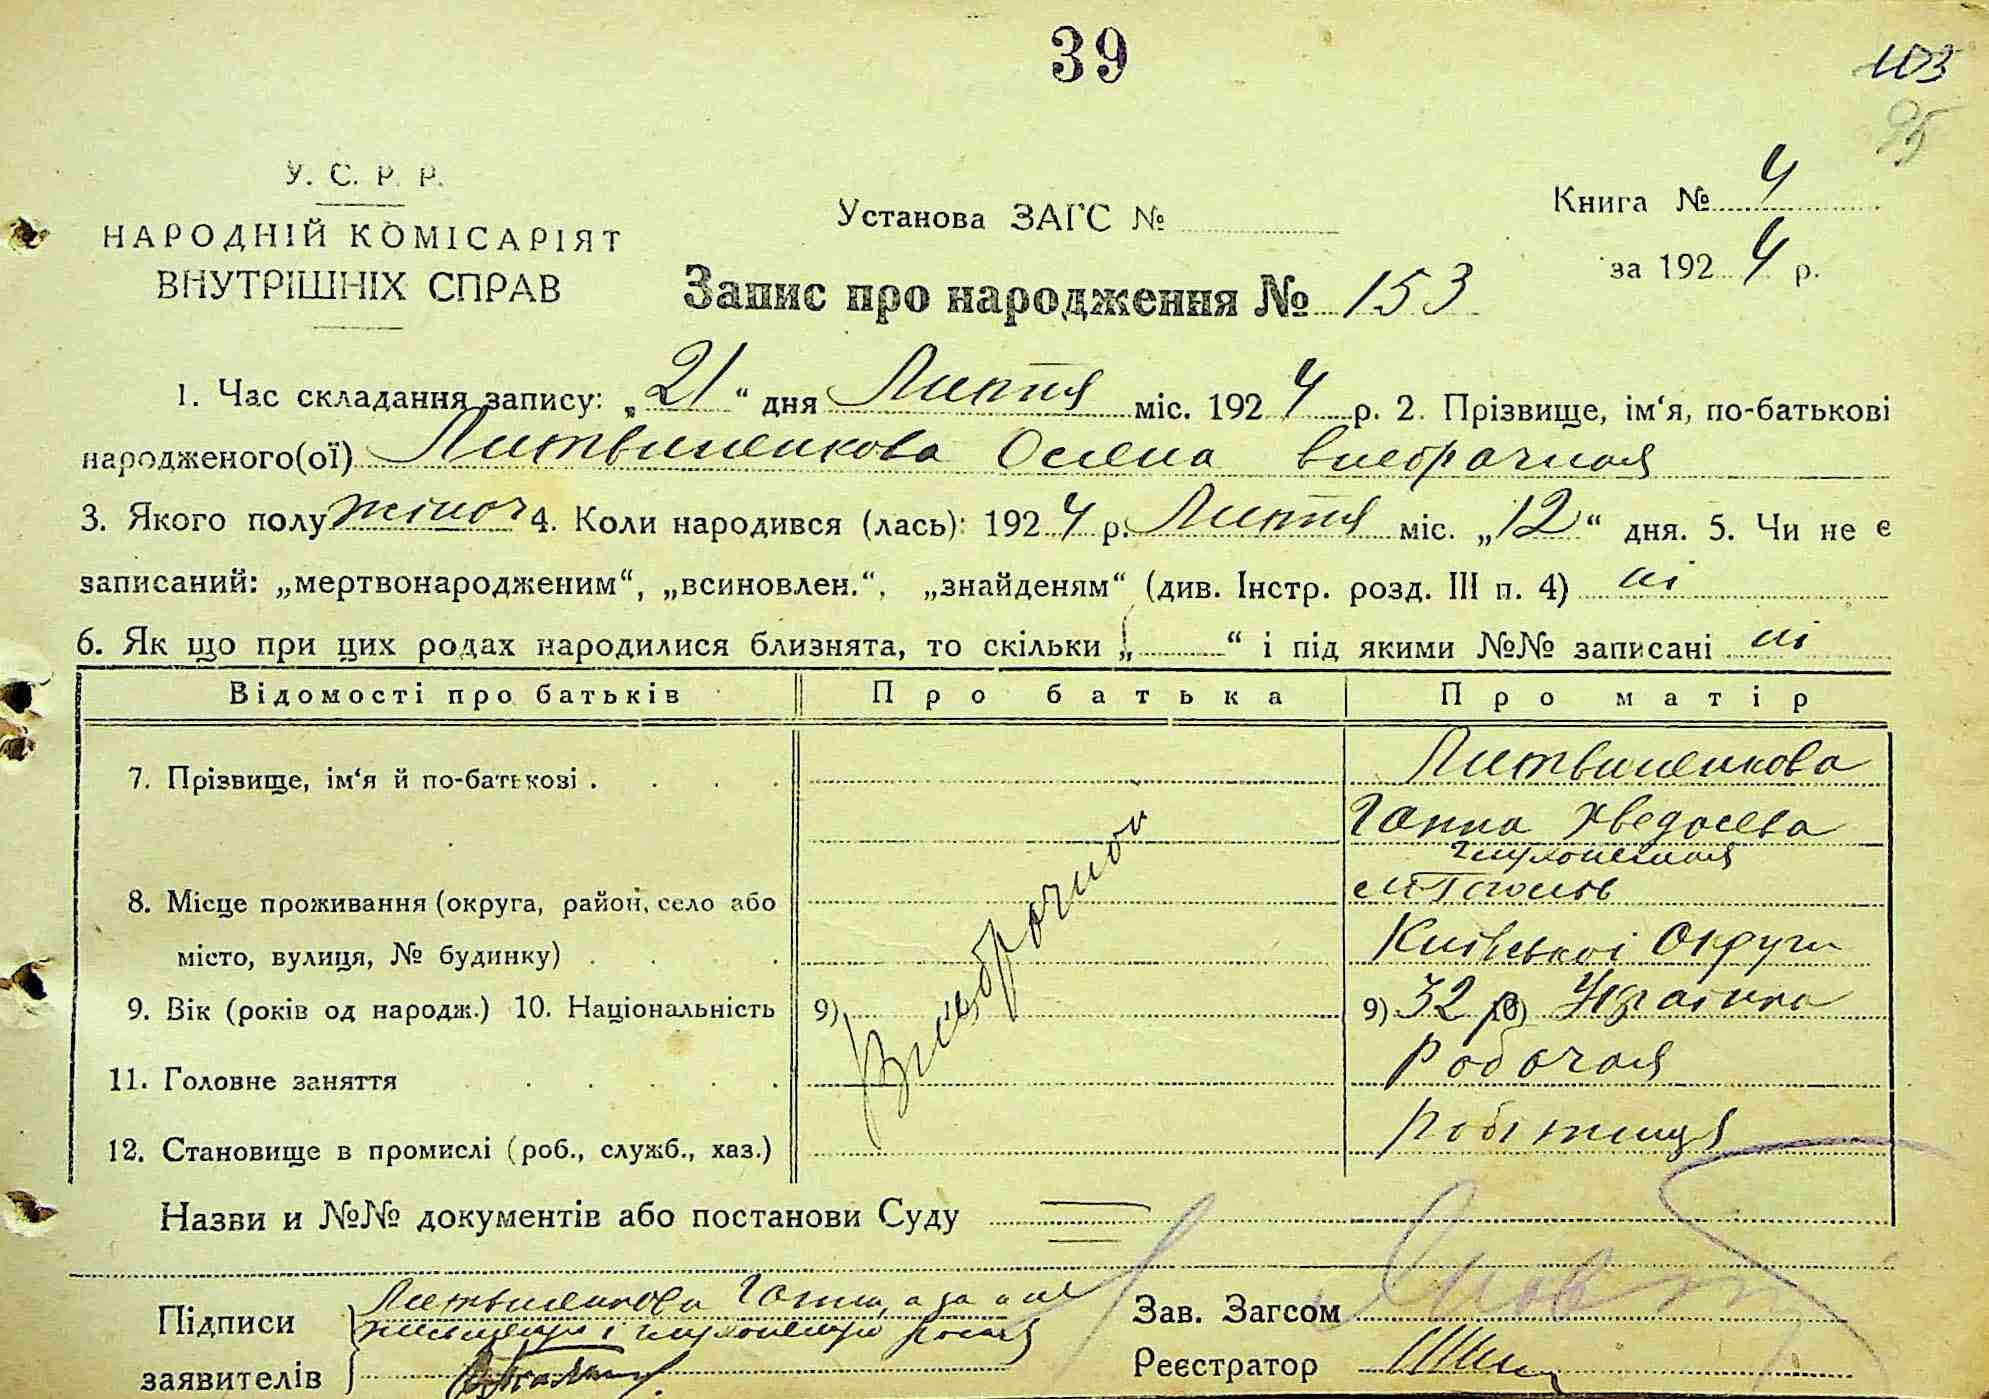 39
103
95
У. С. Р. Р.
НАРОДНІЙ КОМІСАРІЯТ
ВНУТРІШНІХ СПРАВ
Установа ЗАГС №
Книга № 4
за 1924 р.
Запис про народження № 153
1. Час складання запису: „21“ дня Липня міс. 1924 р. 2. Прізвище, ім‘я, по-батькові
народженого(ої) Литвиненкова Олена внебрачная
3. Якого полу жіноч 4. Коли народився (лась): 1924 р. Липня міс. „12“ дня. 5. Чи не є
записаний: „мертвонародженим“, „всиновлен.“, „знайденям“ (див. Інстр. розд. III п. 4) ні
6. Як що при цих родах народилися близнята, то скільки „ “ і під якими №№ записані ні
Відомості про батьків Про батька Про матір
7. Прізвище, ім‘я й по-батькові . . . . Литвиненкова
Ганна Хведосева
глухонемая
8. Місце проживання (округа, район, село або м Гоголів
місто, вулиця, № будинку) . . . . Київської Округи
9. Вік (років од народж.) 10. Національність 9) 9) 32 р 10) Українка
Внебрачная
11. Головне заняття . . . . . Робочая
12. Становище в промислі (роб., служб., хаз.) Робітниця
Назви и №№ документів або постанови Суду
Підписи Литвиненкова Ганна, а за
заявителів
Зав. Загсом
Реєстратор